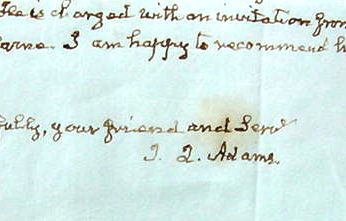 is charged with an invitation from
I am happy to recommend
your friend and Serv
J. Q. Adams.